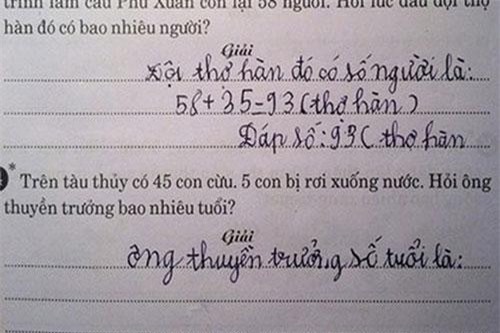 trình làm cầu Phú Xuân còn lại 58 người. Hỏi lúc đầu đội thợ
hàn đó có bao nhiêu người?
Giải
Đội thợ hàn đó có số người là:
58 + 35 = 93 (thợ hàn)
Đáp số: 93 (thợ hàn
* Trên tàu thủy có 45 con cừu. 5 con bị rơi xuống nước. Hỏi ông
thuyền trưởng bao nhiêu tuổi?
Giải
Ông thuyền trưởng số tuổi là: